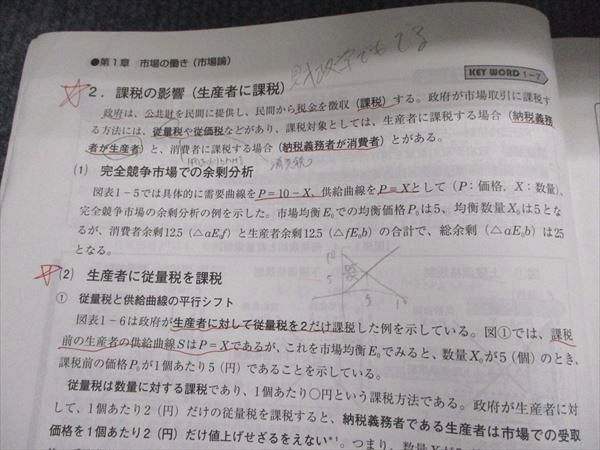 ●第1章　市場の働き(市場論)
財政学でもでる
KEY WORD 1－7
2．課税の影響(生産者に課税)
政府は、公共財を民間に提供し、民間から税金を徴収(課税)する。政府が市場取引に課税す
る方法には、従量税や従価税などがあり、課税対象としては、生産者に課税する場合(納税義務
者が生産者)と、消費者に課税する場合(納税義務者が消費者)とがある。
消費税
(1)　完全競争市場での余剰分析
図表1－5では具体的に需要曲線をP＝10－X、供給曲線をP＝Xとして(P：価格，X：数量)、
完全競争市場の余剰分析の例を示した。市場均衡E₀での均衡価格P₀は5、均衡数量X₀は5とな
るが、消費者余剰12.5(△aE₀f)と生産者余剰12.5(△fE₀b)の合計で、総余剰(△aE₀b)は25
となる。
10
5
5
10
(2)　生産者に従量税を課税
①　従量税と供給曲線の平行シフト
図表1－6は政府が生産者に対して従量税を2だけ課税した例を示している。図①では、課税
前の生産者の供給曲線SはP＝Xであるが、これを市場均衡E₀でみると、数量X₀が5(個)のとき、
課税前の価格P₀が1個あたり5(円)であることを示している。
従量税は数量に対する課税であり、1個あたり○円という課税方法である。政府が生産者に対
して、1個あたり2(円)だけの従量税を課税すると、納税義務者である生産者は市場での受取
価格を1個あたり2(円)だけ値上げせざるをえない*¹。つまり、数量X₀が5